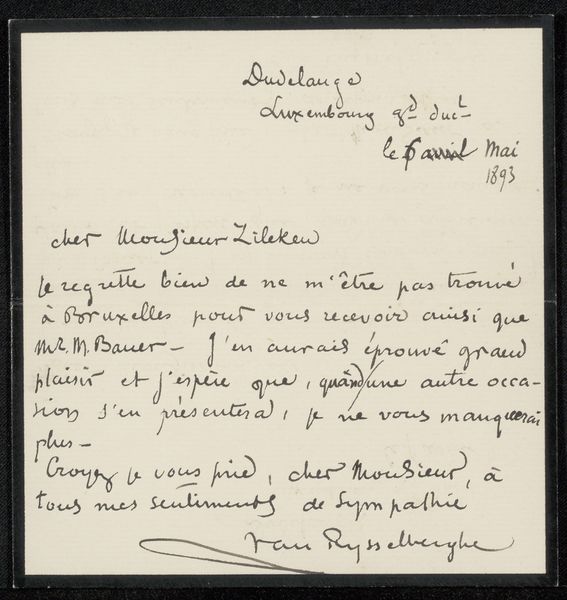 Dudelange
Luxembourg gd duct
le 6 avril Mai
1893
cher Monsieur Zilcken
je regrette bien de ne m'être pas trouvé
à Bruxelles pour vous recevoir ainsi que
Mr. M. Bauer – J'en aurais éprouvé grand
plaisir et j'espère que, quand une autre occa-
sion s'en présentera, je ne vous manquerai
plus –
Croyez je vous prie, cher Monsieur, à
tous mes sentiments de sympathie
van Rysselberghe